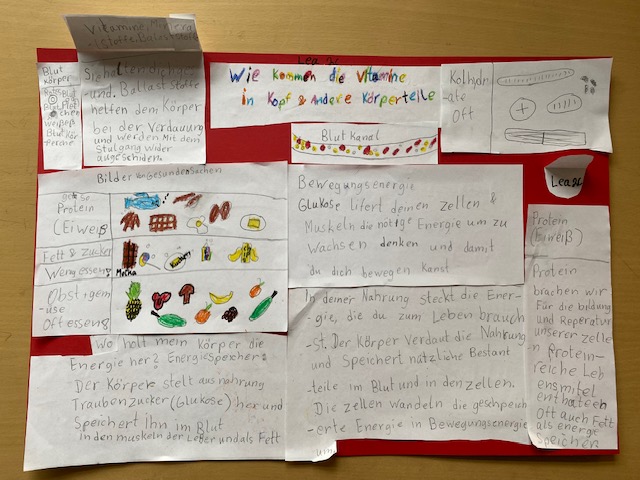 Vitamine, Minera
-lstoffe, Ballaststoffe
Sie halten dich gesund
und Ballast stoffe
helfen dem Körper
bei der Verdauung
und werden mit dem
Stulgang wider
ausgeschiden.
Blut
körper
Blut
weißeß
Blut kör
perche
Lea
Wie kommen die Vitamine
in Kopf & Andere Körperteile
Blut Kanal
Kolhydr
-ate
Oft
Lea
Bilder von Gesunden Sachen
Protein
(Eiweiß)
Fett & Zucker
Wenig essen
Mocka
Obst & gem
-use
Oft essen
Bewegungsenergie
Glukose lifert deinen zellen &
Muskeln die nötige Energie um zu
Wachsen denken und damit
du dich bewegen kanst
Protein
(Eiweiß)
Protein
brachen wir
Für die bildung
und Reperatur
unserer zelle
-n Protein-
reiche Leb
ensmitel
enthalteen
Oft auch Fett
als energie
Speicher
Wo holt mein körper die
Energie her? Energiespeicher:
Der Körper stelt aus nahrung
Traubenzucker (Glukose) her und
Speichert ihn im Blut
in den muskeln der Leber und als Fett
In deiner Nahrung steckt die Ener-
-gie, die du zum Leben brauch
-st. Der Körper verdaut die Nahrung
und Speichert nützliche Bestant
-teile im Blut und in den zellen.
Die zellen wandeln die gespeich
-erte Energie in Bewegungsenergie
um